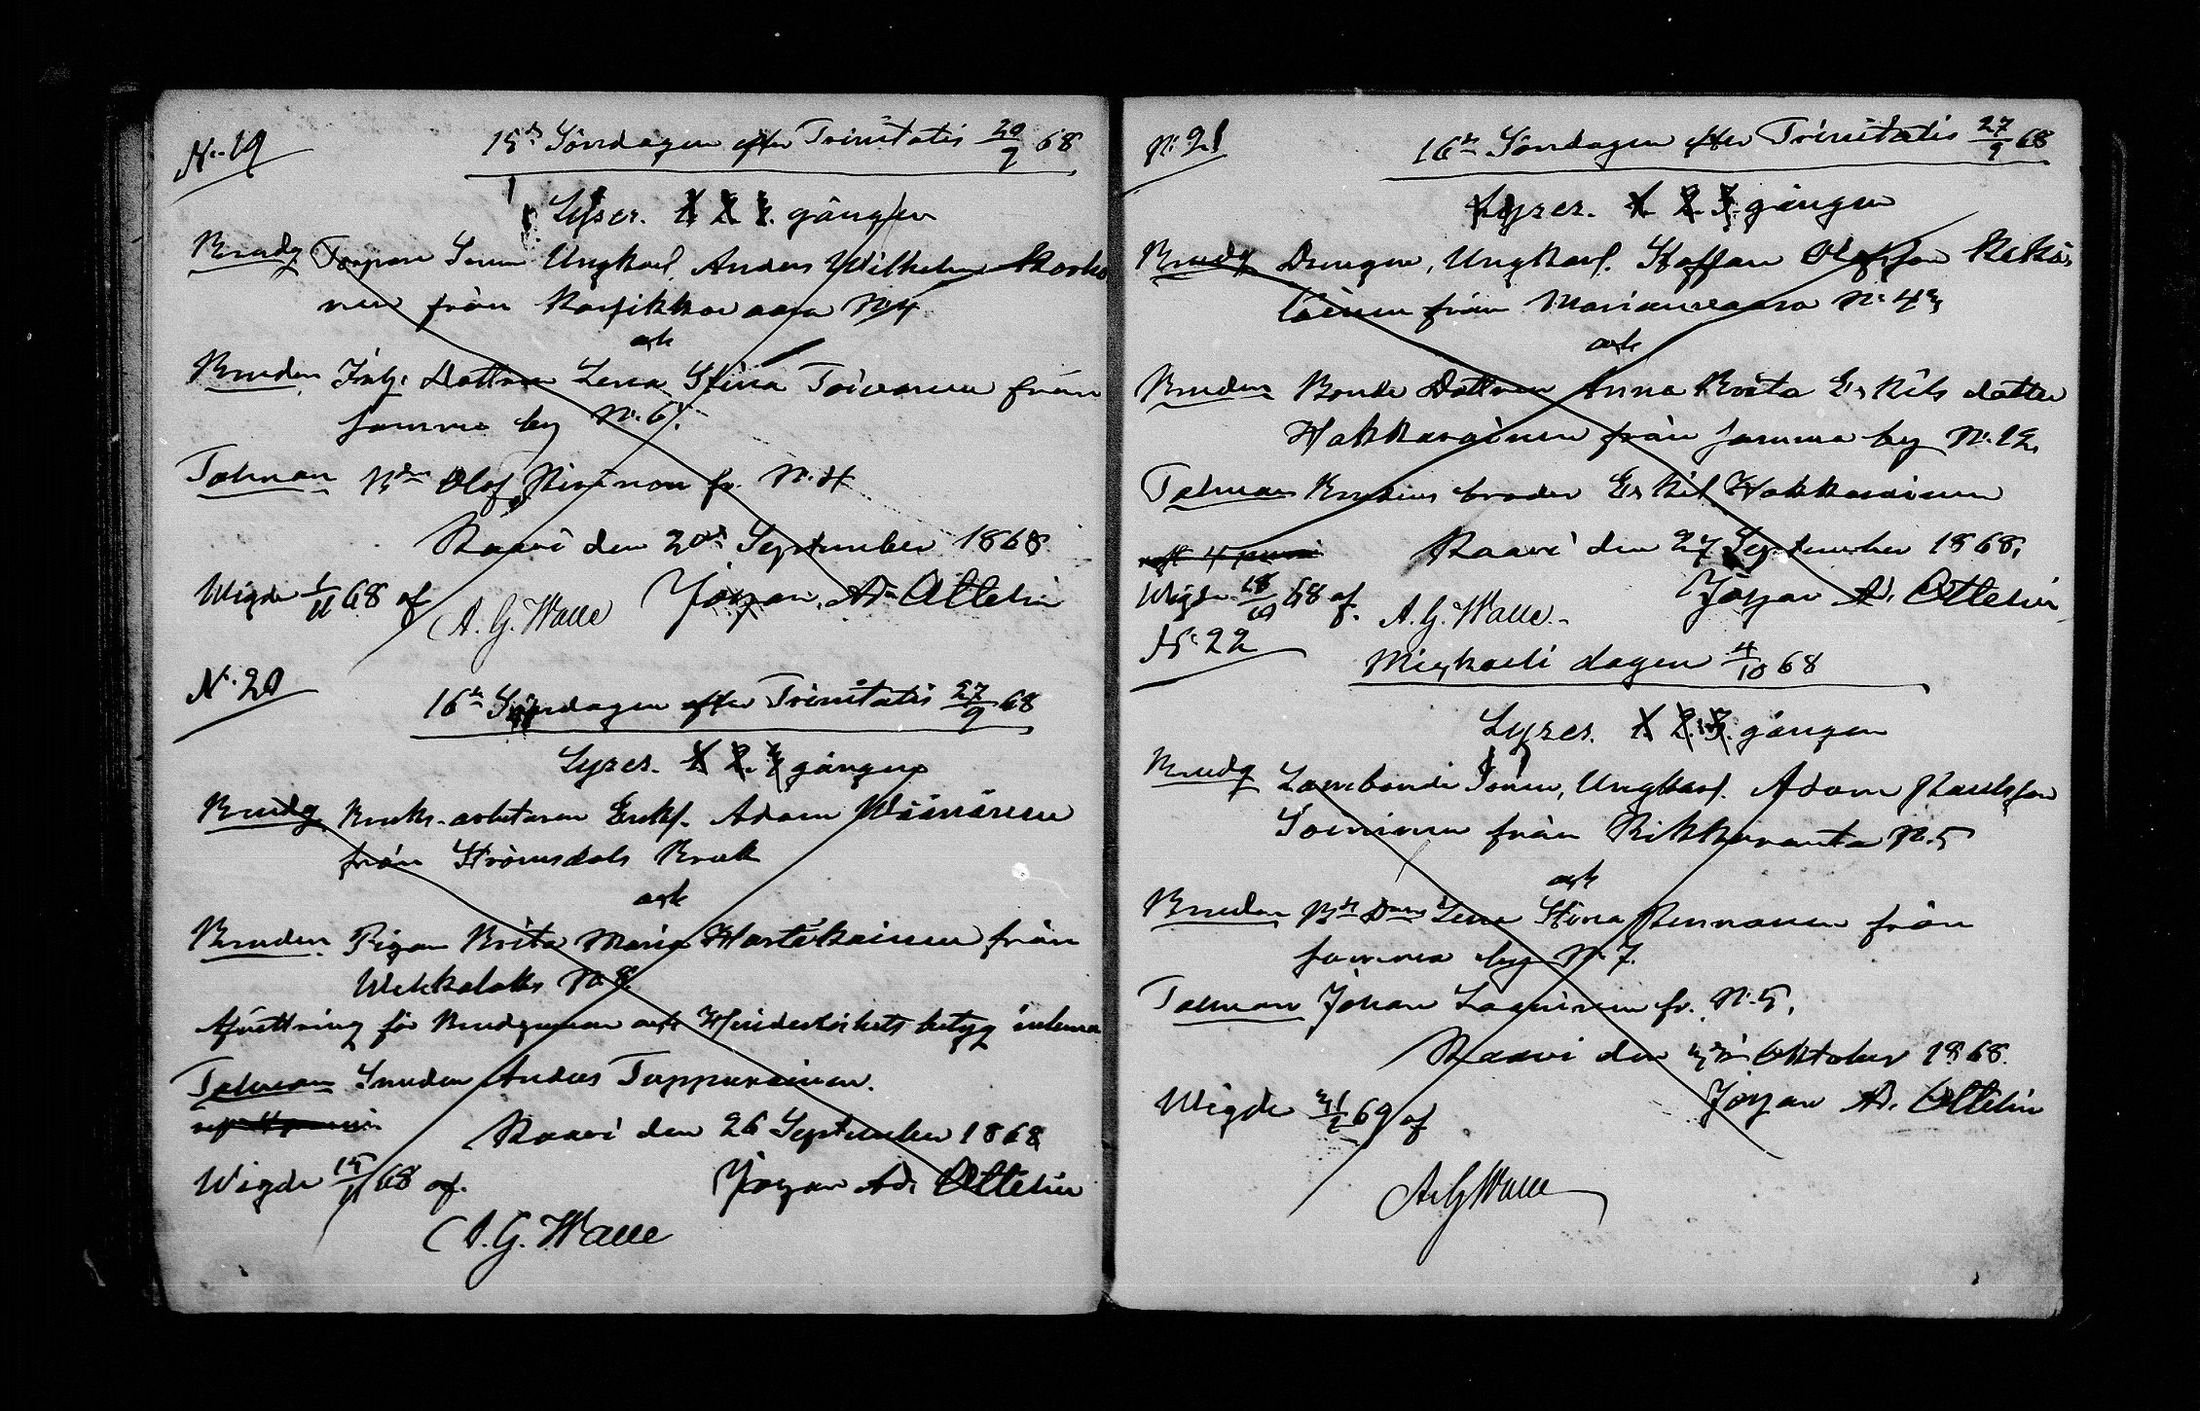 N:19
15de Söndagen efter Trinitatis 20/9 68
Lyses. 1. 2. 3. gången
Brudg Torpare Sonen Ungkarl. Anders Wilhelm
nen från Karsikkovaara N:4
och
Bruden Inh: Dottren Lena Stina Toivanen från
samma by N:6.
Talman Olof fr. N:4
Kaavi den 20de September 1868
Wigde 1/11 68 af
A. G. Walle Johan Ad. Ottelin
N:20
16de Söndagen efter Trinitatis 27/9 68
Lyses. 1. 2. 3. gången
Brudg Bruks-arbetaren Enkl. Adam Väänänen
från Strömsdals Bruk
och
Bruden Pigan Brita Maria Hartikainen från
N:8
för Brudgumen och Hinderlöshets betyg
Talman Anders Tuppurainen.
Kaavi den 26 September 1868
Wigde 15/11 68 af.
Johan Ad. Ottelin
A. G. Walle
N:21
16de Söndagen efter Trinitatis 27/9 68
Lyses. 1. 2. 3. gången
Brudg Drengen, Ungkarl. Staffan Olofsson Kekä-
läinen från Marianvaara N:4
och
Bruden Bonde Dottren Anna Brita Eskils dotter
Hakkarainen från samma by N:12
Talman Brudens broder Eskil Hakkarainen
Kaavi den 27 September 1868,
Wigde 18/10 68 af. A. G. Walle. Johan Ad. Ottelin
N:22
Michaeli dagen 4/10 68
Lyses. 1. 2. 3. gången
Brudg Landbonde Sonen, Ungkarl. Adam Paulsson
Soininen från Rikkaranta N:5
och
Bruden Lena Stina Pennanen från
samma by N:7.
Talman Johan fr. N:5,
Kaavi den Oktober 1868
Wigde 69 af
Johan Ad. Ottelin
A G Walle